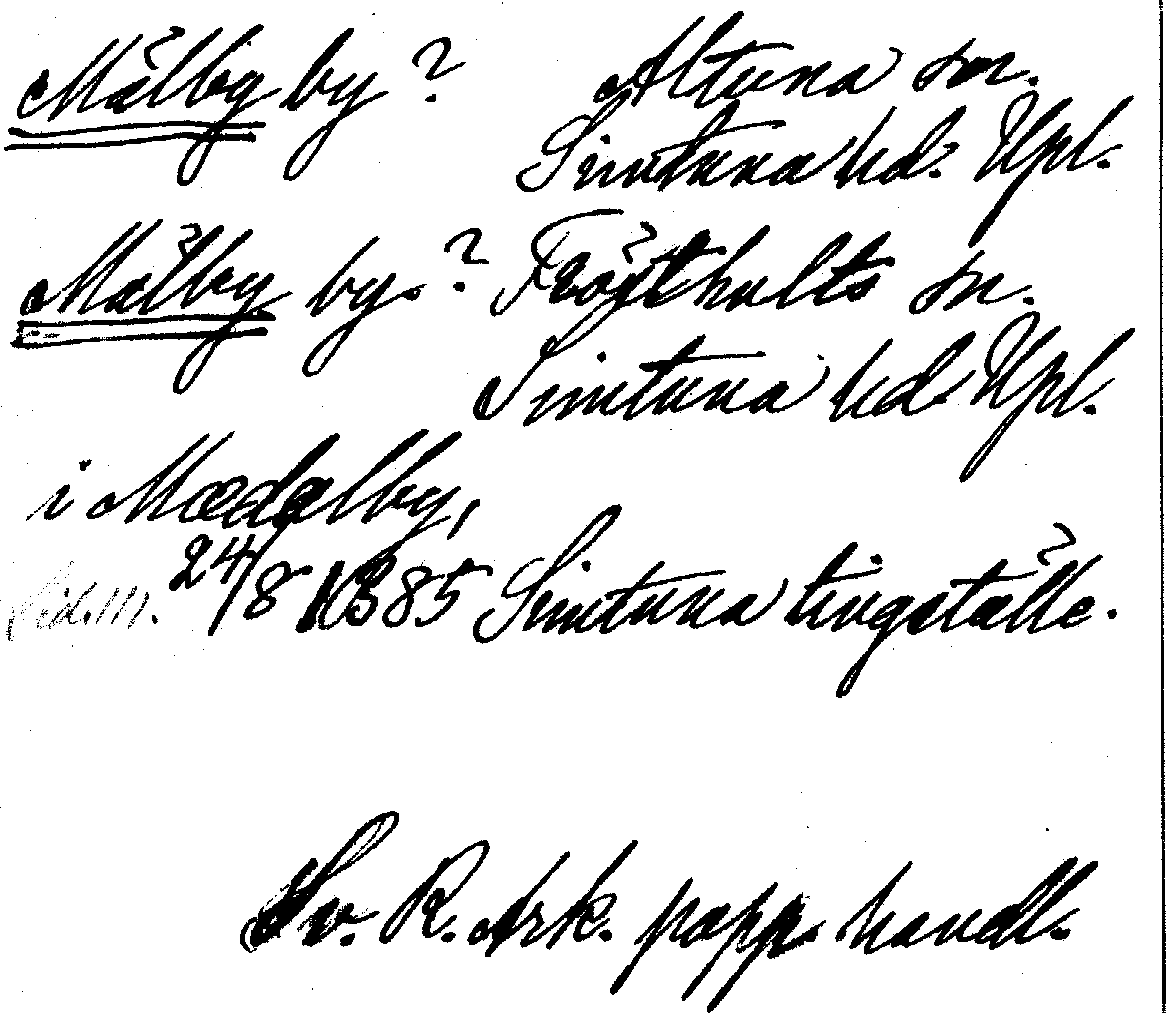 Målby by ? Altuna sn.
Simtuna hd. Upl.
Målby by. ? Frösthults sn.
Simtuna hd Upl.
i Mædalby,
Vid.m. 24/8 1385 Simtuna tingställe.
Sv. R. Ark. papp. handl.